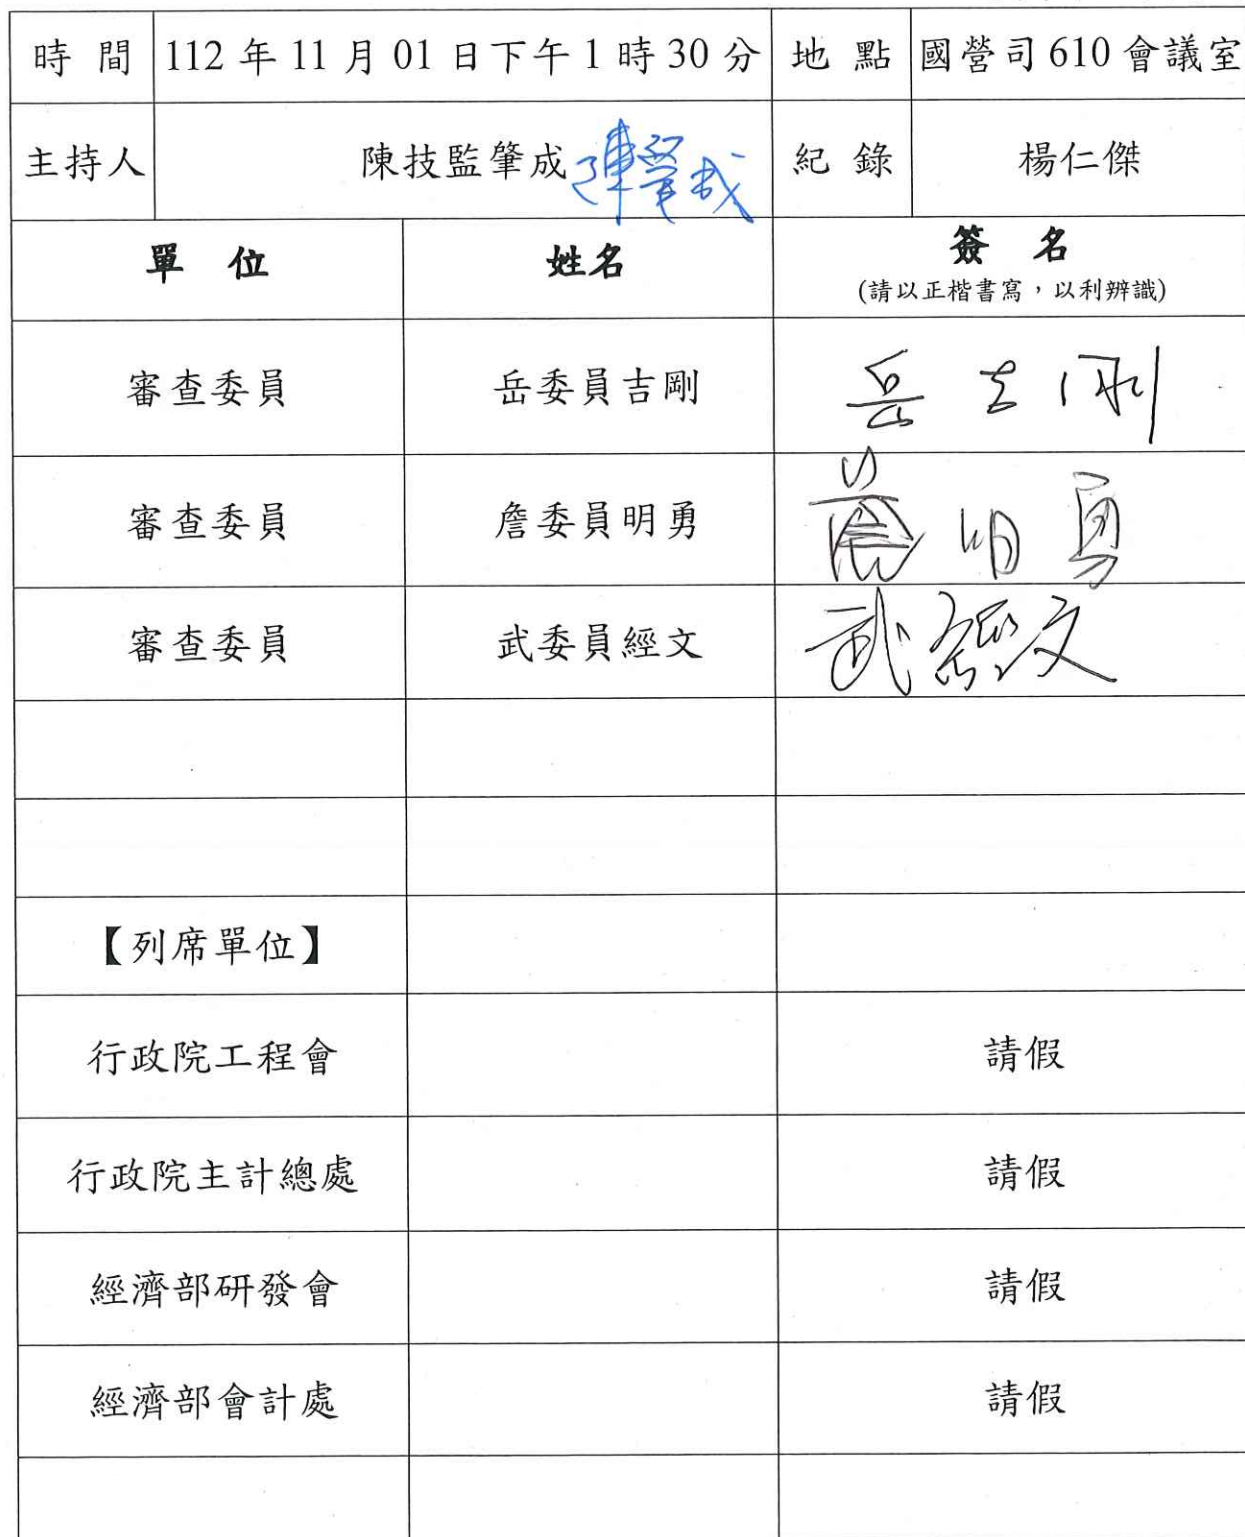 時 間 112 年 11 月 01 日下午 1 時 30 分 地 點 國營司 610 會議室
主持人 陳技監肇成 陳肇成 紀 錄 楊仁傑
單 位 姓名 簽 名
(請以正楷書寫，以利辨識)
審查委員 岳委員吉剛 岳吉剛
審查委員 詹委員明勇 詹明勇
審查委員 武委員經文 武經文
【列席單位】
行政院工程會 請假
行政院主計總處 請假
經濟部研發會 請假
經濟部會計處 請假